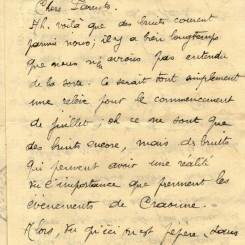 Chers Parents
Ah. voilà que des bruits courent
parmi nous; il y a bien longtemps
que nous n'avions pas entendu
de la sorte. Ce serait tout simplement
une relève pour le commencement
de juillet; oh ce ne sont que
des bruits encore, mais des bruits
qui peuvent avoir une réalité
vu l'importance que prennent les
évènements de
Alors, vu qu'ici on est